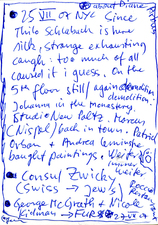 about Diane
25 VII 07 NYC Since
Thilo Schlabach is here
silk, strange exhausting
caugh: too much of all
caused it i guess. On the
5th floor still against demolition
demolition.
Johanna in the Monastery,
Studio New Paltz. Marcus
(Nispel) back in town. Patrick
Orban + Andrea
bought paintings. Weiter
immer
weiter
Consul Zwicky
(Swiss → Jews)
George McGrath + Nicole
Kidman → FUR
27 VII 07